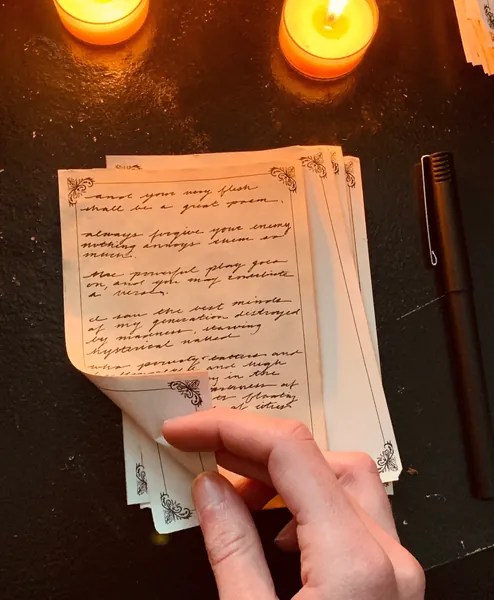 and your very flesh
shall be a great poem.
always forgive your enemy
nothing annoys them so
much.
the powerful play goes
on, and you may contribute
a verse.
I saw the best minds
of my generation destroyed
by madness, starving
hysterical naked
who poverty & tatters and
and high
in the
darkness of
flowing
of cities